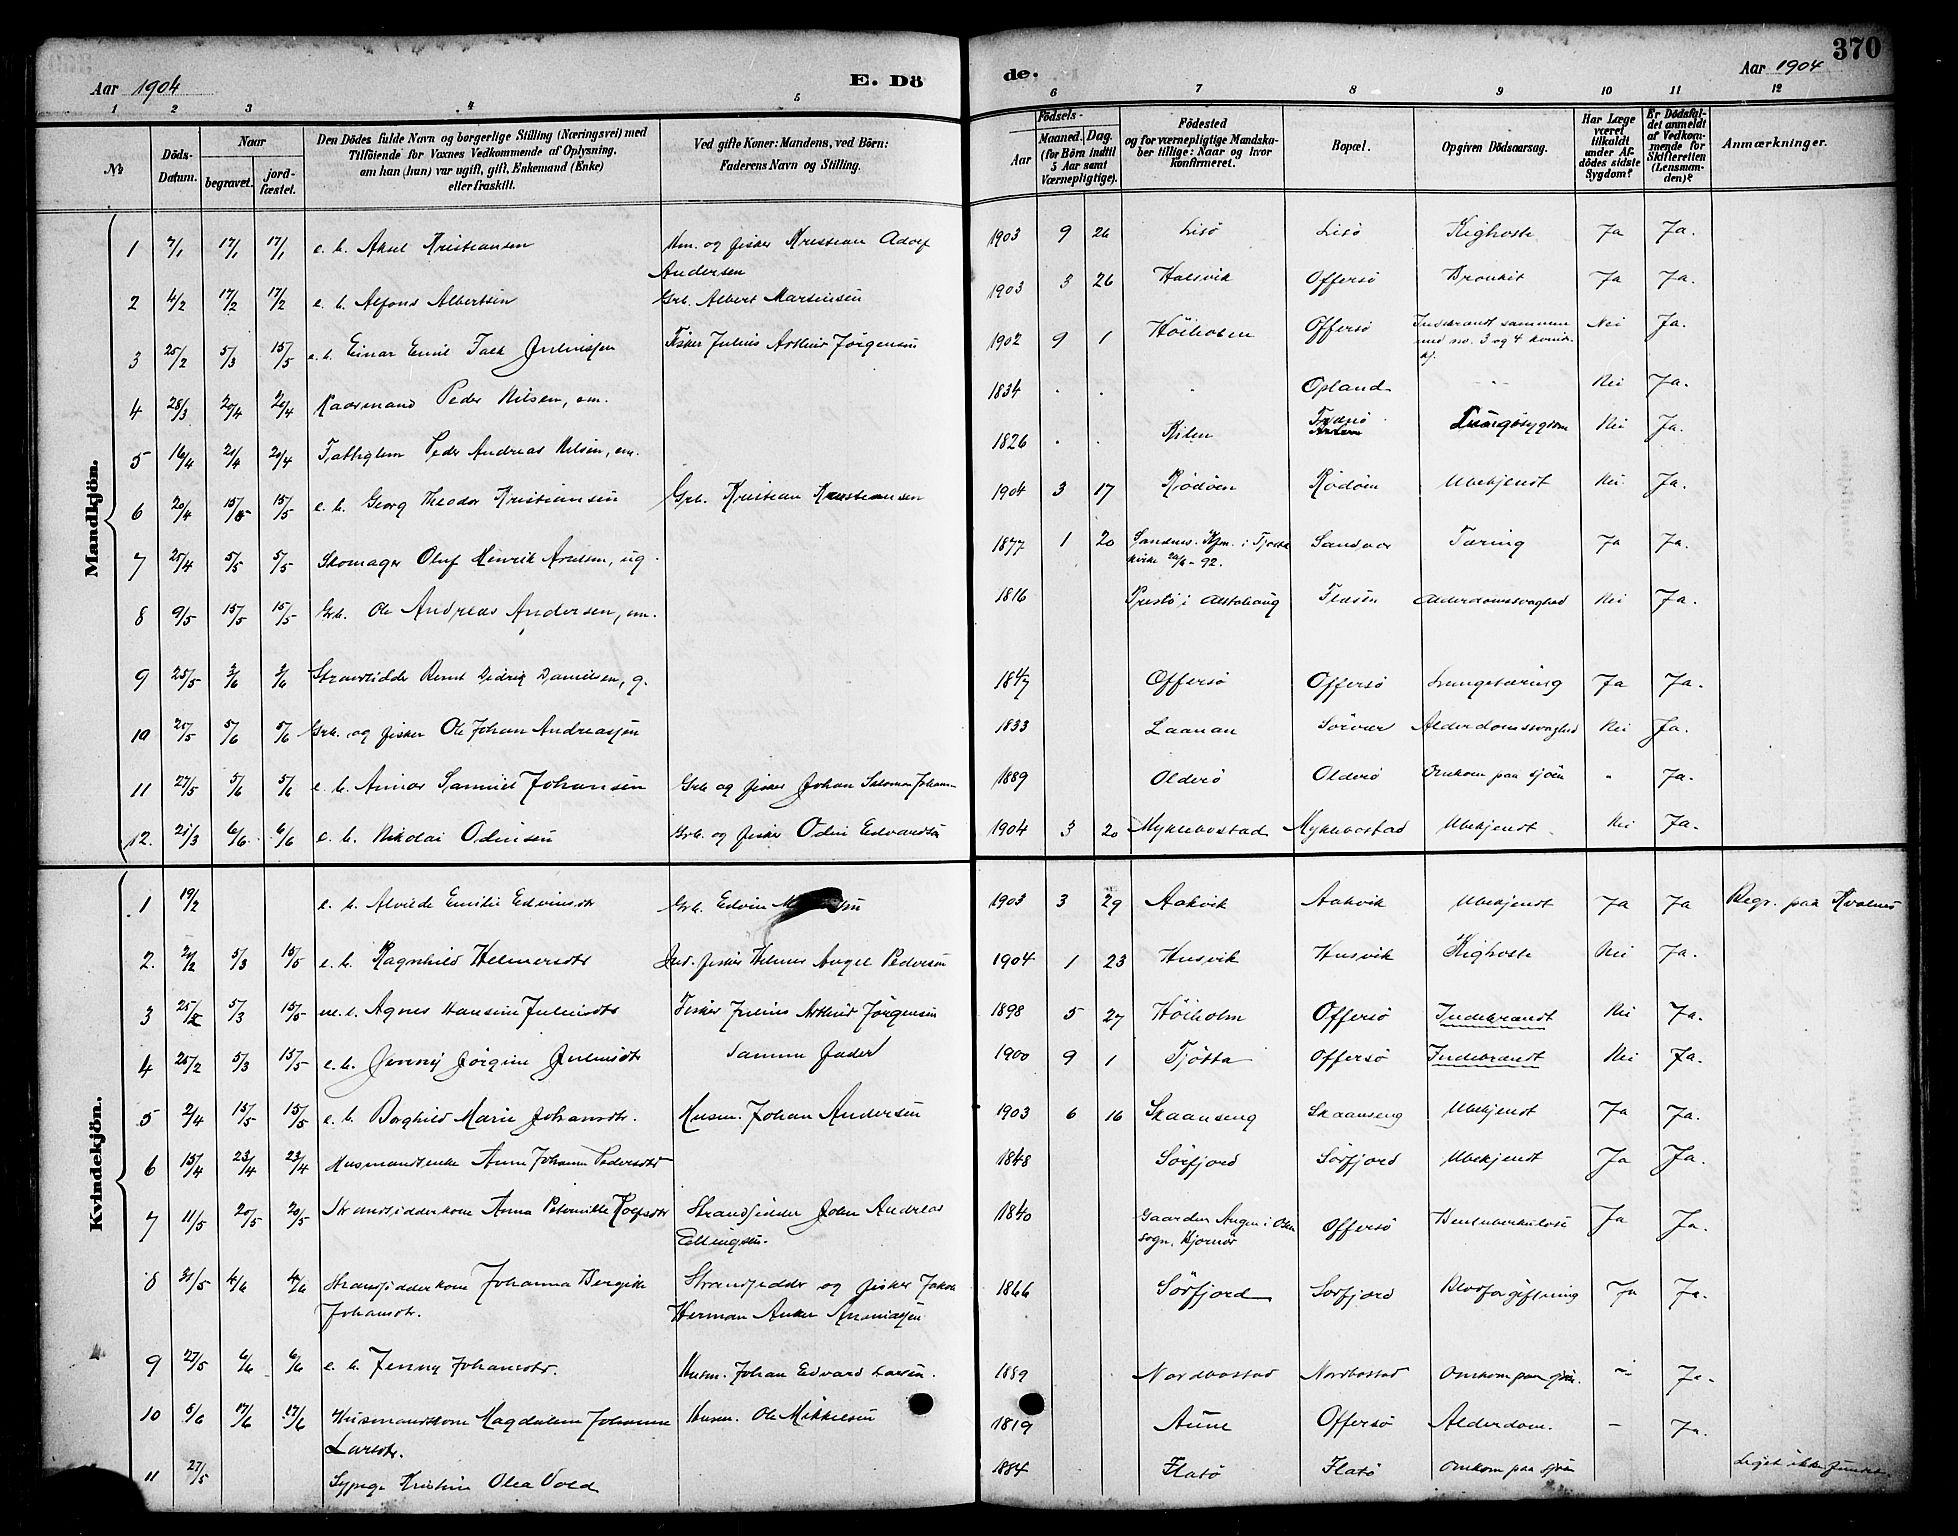 370
Aar 1904
E. Dö
de.
Aar 1904
1 2 3 4 5 6 7 8 9 10 11 12
№
Döds-Datum.
Naar
begravet.
jordfæstet.
Den Dödes fulde Navn og borgerlige Stilling (Næringsvei) med
Tilföiende for Voxnes Vedkommende af Oplysning,
om han (hun) var ugift, gift, Enkemand (Enke)
eller fraskilt.
Ved gifte Koner: Mandens, ved Börn:
Faderens Navn og Stilling.
Födsels-
Aar
Maaned. Dag.
(for Börn indtil
5 Aar samt
Værnepligtige).
Födested
og for værnepligtige Mandska-
ber tillige: Naar og hvor
konfirmeret.
Bopæl.
Opgiven Dödsaarsag.
Har Læge
været
tilkaldt
under Af-
dödes sidste
Sygdom?
Er Dödsfal-
det anmeldt
af Vedkom-
mende for
Skifteretten
(Lensman-
den)?
Anmærkninger.
Mandkjön.
1 7/1 17/1 17/1 e. b. Aksel Kristiansen Hm. og fisker Kristian Adolf Andersen 1903 9 26 Lisö Lisö Kighoste Ja Ja.
2 4/2 17/2 17/2 e. b. Alfons Albertsen Grb. Albert Martinsen 1903 3 26 Halsvik Offersö Bronkit Ja Ja.
3 25/2 5/3 15/5 e. b. Einar Emil Falk Juliussen Fisker Julius Arthur Jörgensen 1902 9 1 Höiholm Offersö Indebrandt sammen med no. 3 og 4 kvindekj. Nei Ja.
4 28/3 20/4 20/4 Kaarmand Peder Nilsen, em. 1834 Opland Nei Ja.
5 16/4 20/4 20/4 Fattiglem Peder Andreas Nilsen, em. 1826 Kilen Lungesygdom Nei Ja.
6 20/4 15/5 15/5 e. b. Georg Theodor Kristiansen Grb. Kristian Kristiansen 1904 3 17 Rödöen Rödöen Ubekjendt Nei Ja.
7 25/4 5/5 5/5 Skomager Oluf Henrik Arntsen, ug. 1877 1 20 Sandnes. Kfm. i Tjötta kirke 26/6-92. Sandvær Tæring Ja Ja.
8 9/5 15/5 15/5 Grb. Ole Andreas Andersen, em. 1816 Prestö i Alstahaug Alderdomssvaghed Nei Ja.
9 25/5 2/6 2/6 Strandsidder Bernt Dedrik Danielsen, g. 1847 Offersö Offersö Lungetæring Ja Ja.
10 25/5 5/6 5/6 Grb. og fisker Ole Johan Andreassen 1833 Laanan Sörvær Alderdomssvaghed Nei Ja.
11 27/5 5/6 5/6 e. b. Samuel Johansen Grb og fisker Johan Salomon Johans. 1889 Olderö Olderö Omkom paa sjöen " Ja.
12. 21/3 6/6. 6/6 e. b. Nikolai Odinsen Grb. og fisker Odin Edvardsen 1904 3 20 Myklebostad Myklebostad Ubekjendt Nei Ja.
Kvindekjön.
1 19/2 e. b. Alvilde Emilie Edvinsdtr Grb. Edvin 1903 3 29 Aakvik Aakvik Ubekjendt Ja Ja Begr. paa Kvalnes
2. 2/2 5/3 15/5 e. b. Ragnhild Helmersdtr Ind. fisker Helmer Angel Pedersen 1904 1 23 Husvik Husvik Kighoste Nei Ja.
3 25/2 5/3 15/5 e. Agnes Hansine Juliusdtr Fisker Julius Arthur Jörgensen 1898 5 27 Höiholm Offersö Indebrandt Nei Ja.
4 25/2 5/3 15/5 e. b. Jenny Jörgine Juliusdtr Samme fader 1900 9 1 Tjötta Offersö Indebrandt Nei Ja.
5 2/4 15/5 15/5 e. b. Borghild Marie Johansdtr. Husm. Johan Andersen 1903 6 16 Skaanseng Skaanseng Ubekjendt Ja Ja.
6 15/4 23/4 23/4 Husmandsenke Anne Johanna Pedersdtr 1848 Sörfjord Sörfjord Ubekjendt Ja Ja.
7 11/5 20/5 20/5 Strandsidderkone Anna Peternille Rolfsdtr Strandsidder Johan Andreas Ellingsen. 1840 Gaarden Angen i Sogn. Bjørnør Offersö Bentuberkulose Ja Ja.
8 31/5 4/6 4/6 Strandsidderkone Johanna Bergitte Johansdtr. Strandsidder og fisker Jakob Herman Anker Ananiassen 1866 Sörfjord Sörfjord Blodforgiftning Ja Ja.
9 27/5 6/6 6/6 e. b. Jenny Johansdtr. Husm. Johan Edvard Larsen. 1889 Nordbostad Nordbostad Omkom paa sjöen. - Ja.
10 5/6 17/6 17/6 Husmandskone Magdalena Johanna Larsdtr. Husm. Ole Mikkelsen 1819 Aune Offersö Alderdom. - Ja.
11 27/5 Sypige Kristine Olea Vold 1884 Flatö Flatö Omkom paa sjöen Liget ikke fundet.